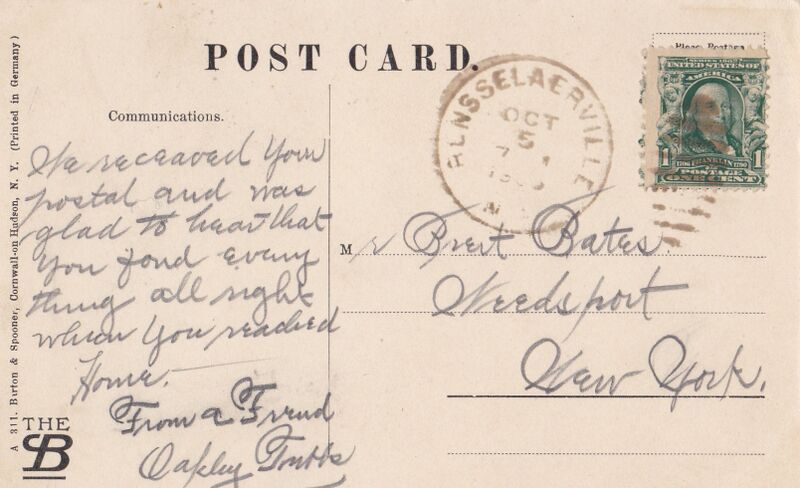 POST CARD.
Communications.
We receaved Your
postal and was
glad to hear that
You fond every
thing all right
when You reached
Home.
From a Freud
Oakley Tubbs
Mr Bret Bates.
Weedsport
New York.
RENSSELAERVILLE
OCT
5
7
N
Please Postage
SERIES 1902
UNITED STATES OF
AMERICA
1706 FRANKLIN 1790
1 1
POSTAGE
ONE CENT
A 311. Burton & Spooner, Cornwall-on Hudson, N. Y. (Printed in Germany)
THE
SB